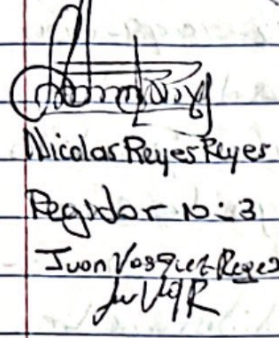 Nicolas Reyes Reyes
Regidor no=3
Juan Vasquez Reyes